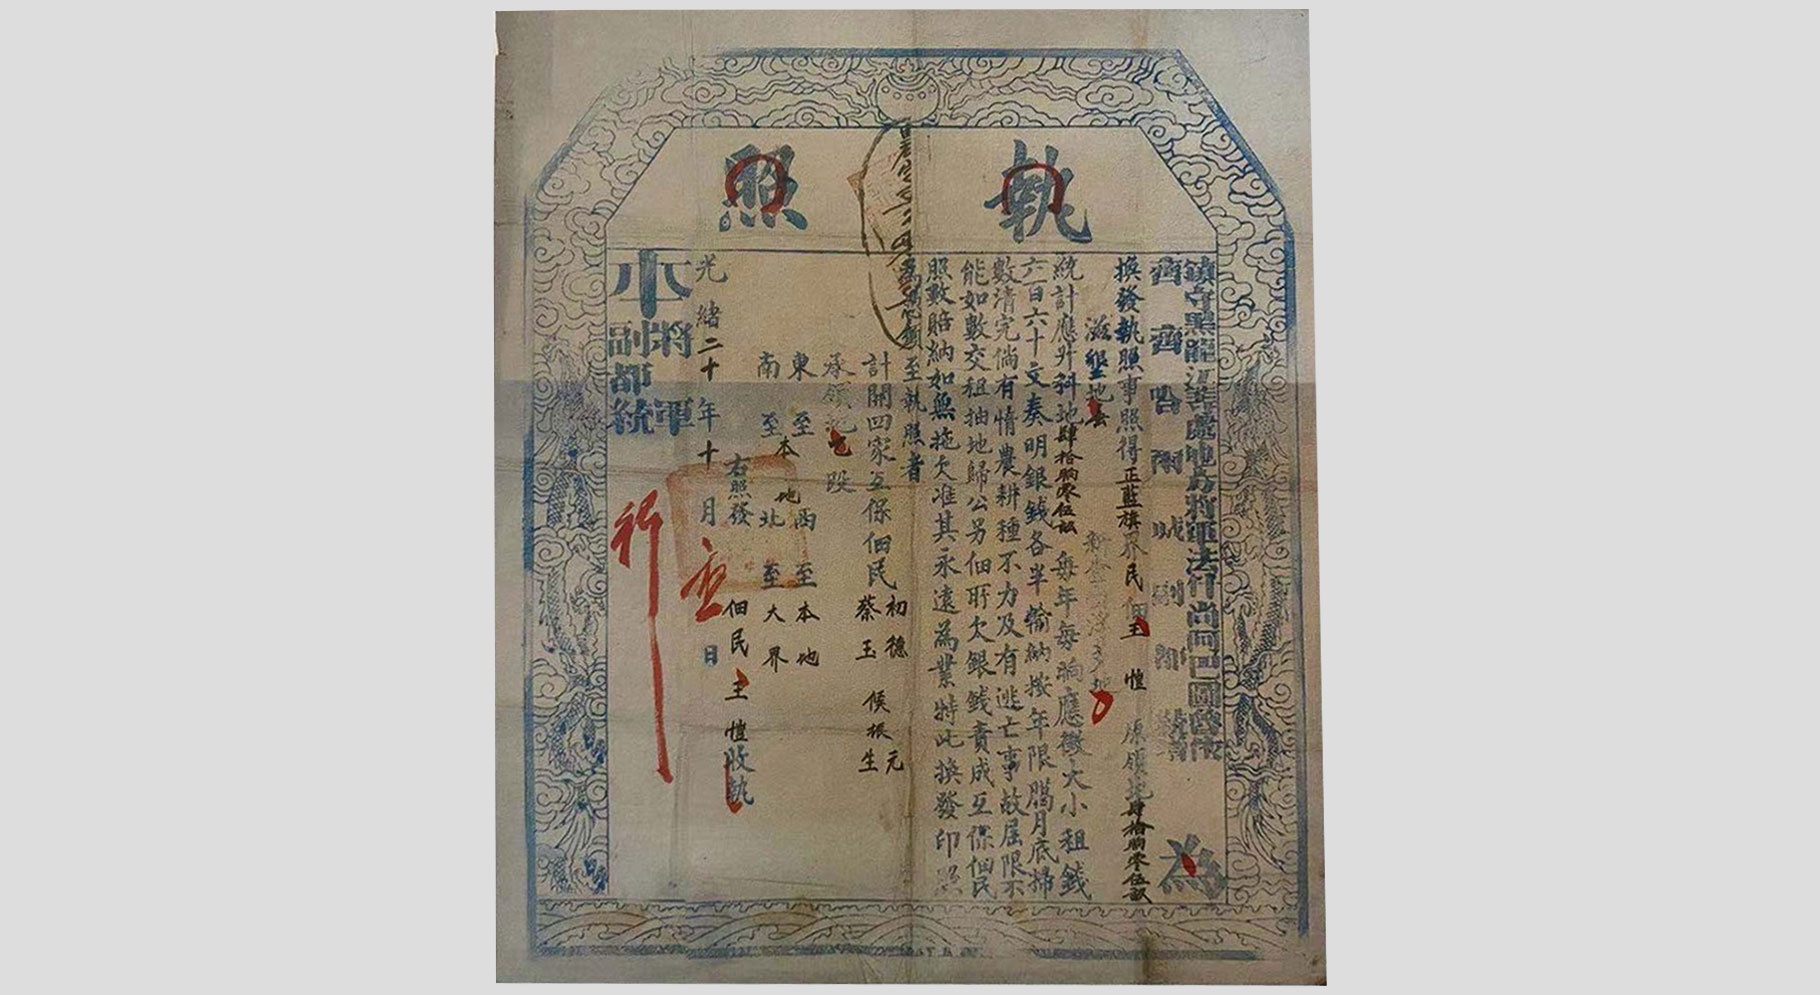 執照
鎮守黑龍江等處地方將軍法什尚阿巴圖魯依
齊齊哈爾城副都
為
換發執照事照得正藍旗界民佃王愷原領地肆拾晌零伍畝
滋墾地
統計應升科地肆拾晌零伍畝每年每晌應徵大小租錢
六百六十文奏明銀錢各半輸納按年限臈月底掃
數清完倘有惰農耕種不力及有逃亡事故屆限不
能如數交租抽地歸公另佃所欠銀錢責成互保佃民
照數賠納如無拖欠准其永遠為業特此換發印照
為憑須至執照者
計開四家互保佃民初德元
蔡玉
侯振生
承領地七段
東至本地西至本地
南至本地北至大界
右照發佃民王愷收執
光緒二十年十月日
將軍
副都統
行